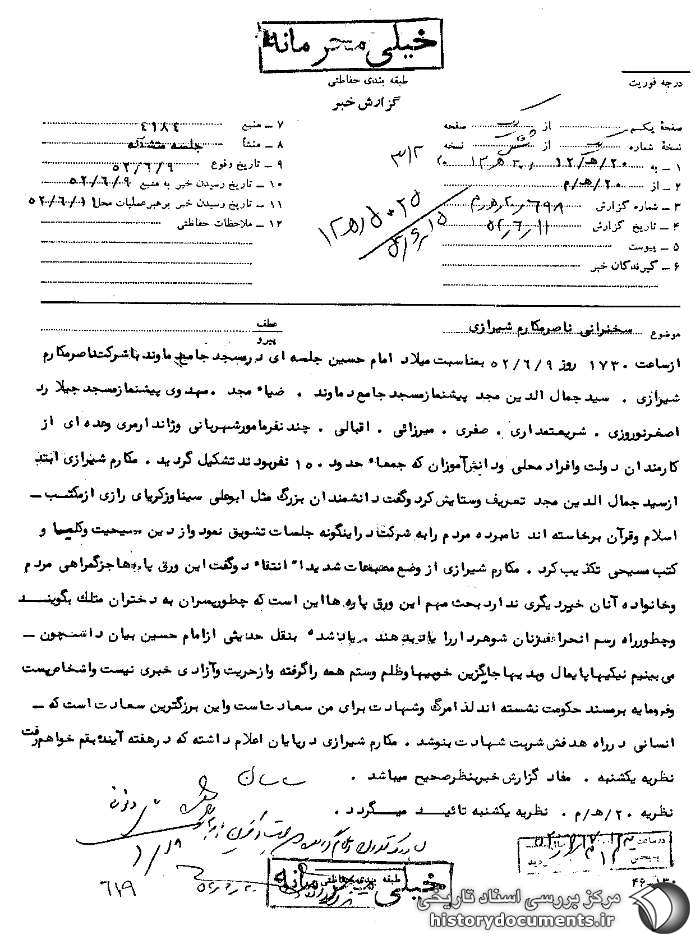 خیلی محرمانه
طبقه بندی حفاظتی
گزارش خبر
درجه فوریت
صفحهٔ یکم از صفحه
نسخهٔ شماره از نسخه
۱ ـ به ۲۰/ه‍/۱۲
۲ ـ از ۲۰/ه‍/م
۳ ـ شماره گزارش ۶۹۸
۴ ـ تاریخ گزارش ۵۲٫۶٫۱۱
۵ ـ پیوست
۶ ـ گیرندگان خبر
۷ ـ منبع ۴۱۸۴
۸ ـ منشأ جلسه متشکله
۹ ـ تاریخ وقوع ۵۲/۶/۹
۱۰ ـ تاریخ رسیدن خبر به منبع ۵۲/۶/۹
۱۱ ـ تاریخ رسیدن خبر برهبر عملیات محل ۵۲/۶/۱۱
۱۲ ـ ملاحظات حفاظتی
۳۱۲
موضوع سخنرانی ناصر مکارم شیرازی
عطف
پیرو
از ساعت ۱۷۳۰ روز ۵۲/۶/۹ بمناسبت میلاد امام حسین جلسه ای در مسجد جامع دماوند با شرکت ناصر مکارم
شیرازی . سید جمال الدین مجد پیشنماز مسجد جامع دماوند . ضیاء مجد . مهدوی پیشنماز مسجد جیلارد
اصغر نوروزی . شریعتمداری . صفری . میرزائی . اقبالی . چند نفر مامور شهربانی و ژاندارمری وعده ای از
کارمندان دولت وافراد محلی ودانش آموزان که جمعاً حدود ۱۵۰ نفر بودند تشکیل گردید . مکارم شیرازی ابتدا
از سید جمال الدین مجد تعریف وستایش کرد وگفت دانشمندان بزرگ مثل ابوعلی سینا وزکریای رازی از مکتب ـ
اسلام وقرآن برخاسته اند نامبرده مردم را به شرکت در اینگونه جلسات تشویق نمود واز دین مسیحیت وکلیسا و
کتب مسیحی تکذیب کرد . مکارم شیرازی از وضع مطبوعات شدیداً انتقاد وگفت این ورق پاره ها جز گمراهی مردم
وخانواده آنان خبر دیگری ندارد بحث مهم این ورق پاره ها این است که چطور پسران به دختران متلك بگویند
وچطور راه رسم انحراف زنان شوهردار را یاد بدهند بنقل حدیثی از امام حسین بیان داشت چون ـ
می بینیم نیکیها پایمال وبدیها جایگزین خوبیها وظلم وستم همه را گرفته واز حریت وآزادی خبری نیست واشخاص پست
وفرومایه بر مسند حکومت نشسته اند لذا مرگ وشهادت برای من سعادت است واین بزرگترین سعادت است که ـ
انسانی در راه هدفش شربت شهادت بنوشد . مکارم شیرازی در پایان اعلام داشته که در هفته آینده بقم خواهم رفت
نظریه یکشنبه . مفاد گزارش خبر بنظر صحیح میباشد .
نظریه ۲۰/ه‍/م . نظریه یکشنبه تائید میگردد .
طبقه بندی حفاظتی
خیلی محرمانه
۶۱۹
مرکز بررسی اسناد تاریخی
historydocuments.ir